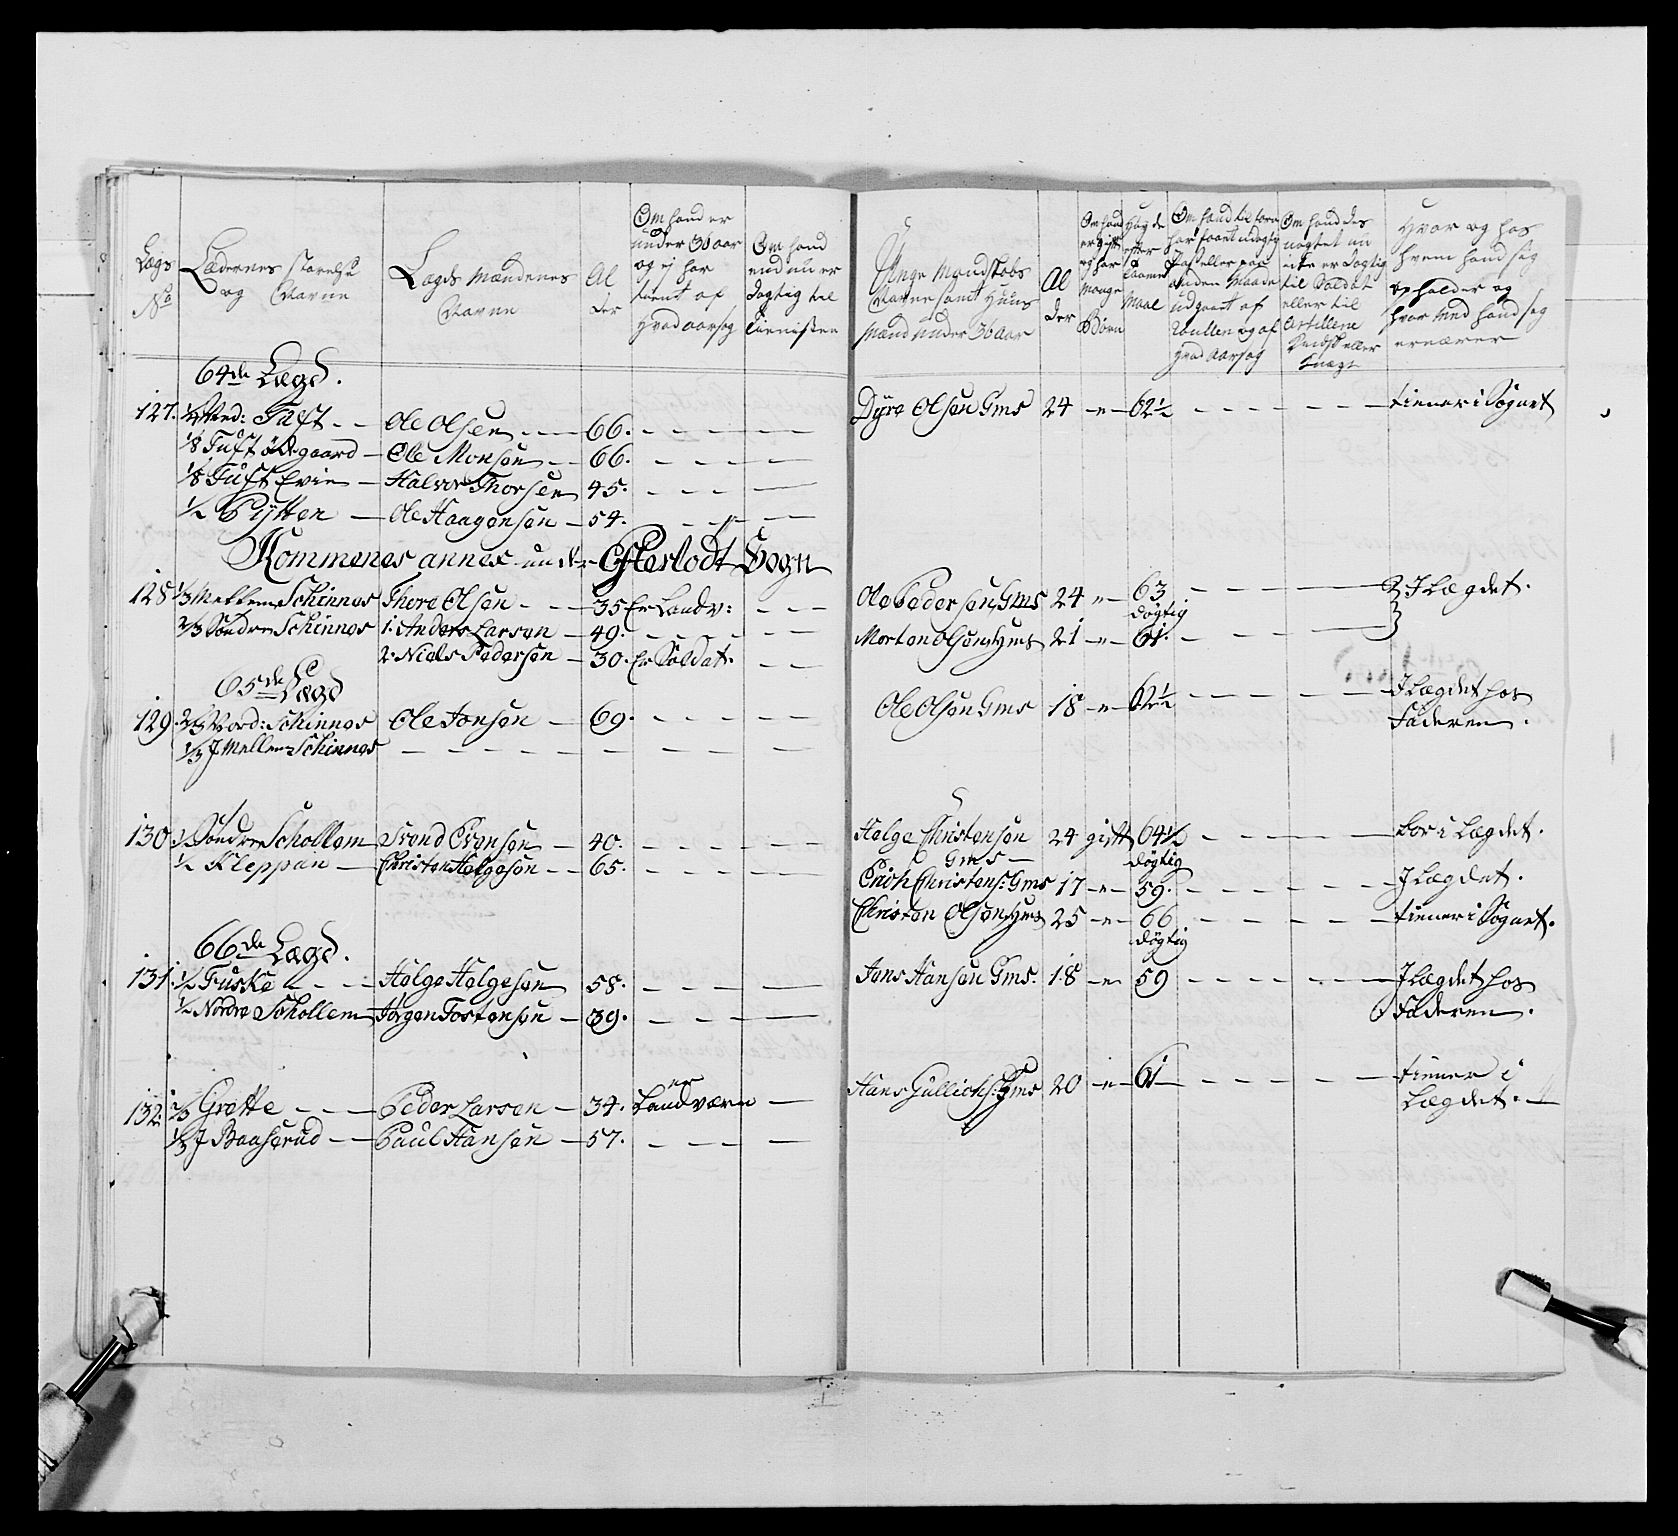 Lægs No
Lædernes størrelse og Navne
Lægds Mændenes Navne
Alder
Om hand er under 36 aar og ej har tient af hvad aarsag
Om hand end nu er dögtig til Tienisten
Unge Mandskabs Navne samt Huus Mænd under 36 Aar
Alder
Om hand er gift og har mange Börn
Høyde efter Maal
Om hand til forn har faaet udögtig Pas eller paa anden Maade udgaaet af Rullen og af hvad aarsag
Om hand des uagtet nu ikke er dögtig til Soldat eller til Artillerie Knægt
Hvor og hos hvem hand sig opholder og hvor med hand sig ernærer
64de Lægd.
127. ½ Ned: Tuft - - Ole Olsen - - 66. - - - - Dyre Olsen Gms 24 - „ - 62½ - - - - tiener i Sognet
⅛ Tuft Ödegaard - Ole Monsen - - 66. - - - -
⅛ Tuft Evie - Halvor Thorsen 45. - - - -
½ Pytten - Ole Haagensen - 54. - - - -
Kommenes annex under Efteslodt Sogn
128 ⅓ Mellem Schinnes Thore Olsen - - - 35 Er Landv: - - - Ole Pedersen Gms 24 - „ - 63 dögtig - - - - I Lægdet.
⅔ Söndre Schinnes 1. Anders Larsen - 49. - - - - Morten Olsen Hms 21 - „ - 61. - - - -
2. Niels Pedersen - 30. Er Soldat. - -
65de Lægd
129. ⅔ Nord: Schinnes Ole Jonsen - 69. - - - - Ole Olsen Gms 18 - „ - 62½ - - - - I Lægdet hos Faderen.
⅓ J Mellem Schinnes - - - - - - -
130. ½ Söndre Schollem Svend Evensen - 40. - - - - Helge Christensen Gms - 24 gift 64½ dögtig - - - - boer i Lægdet.
½ Kleppan - Christen Helgesen - - 65. - - - - Erich Christens: Gms 17 - „ - 59. - - - - I Lægdet.
Christen Olsen Hms 25 - „ - 66 dögtig - - - - tiener i Sognet.
66de Lægd.
131. ½ Fuske - - - Helge Helgesen 58. - - - - Jens Hansen Gms. 18 - „ - 59 - - - - I Lægdet hos Faderen.
½ Nordre Schollem Jörgen Tostensen - 39. - - - -
132. ⅔ Grette - - - Peder Larsen - 34. er Landværn - Hans Gullichs: Gms 20 - „ - 61 - - - - tiener i Lægdet. -
⅓ J Baaserud - - Paul Hansen - 57. - - - -